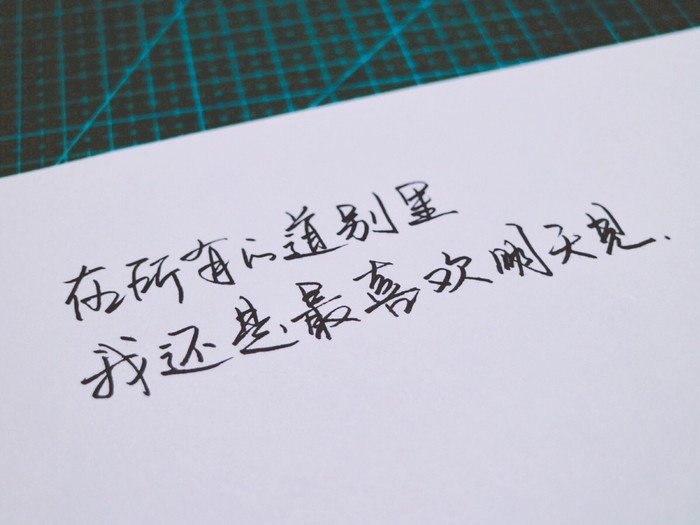 在所有的道别里
我还是最喜欢明天见.